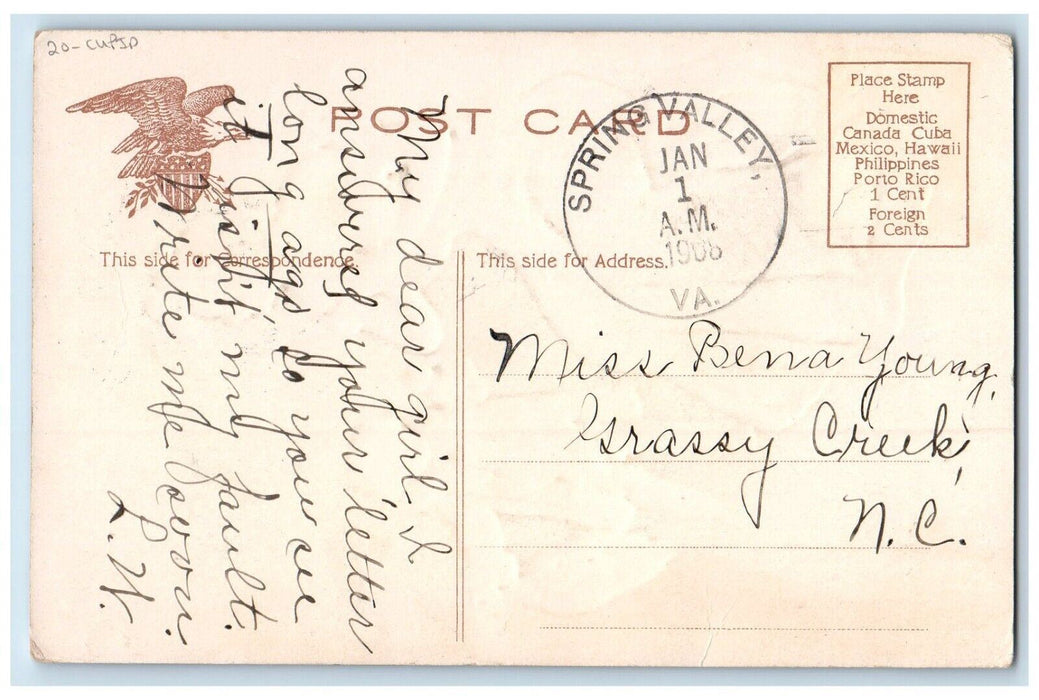 20-CUPID
POST CARD
Place Stamp
Here
Domestic
Canada Cuba
Mexico, Hawaii
Philippines
Porto Rico
1 Cent
Foreign
2 Cents
SPRING VALLEY,
JAN
1
A.M.
1908
VA.
This side for Correspondence.
This side for Address.
My dear girl I
answered your letter
long ago so you see
it isn't my fault.
Write me soon.
L. W.
Miss Bena Young,
Grassy Creek,
N.C.